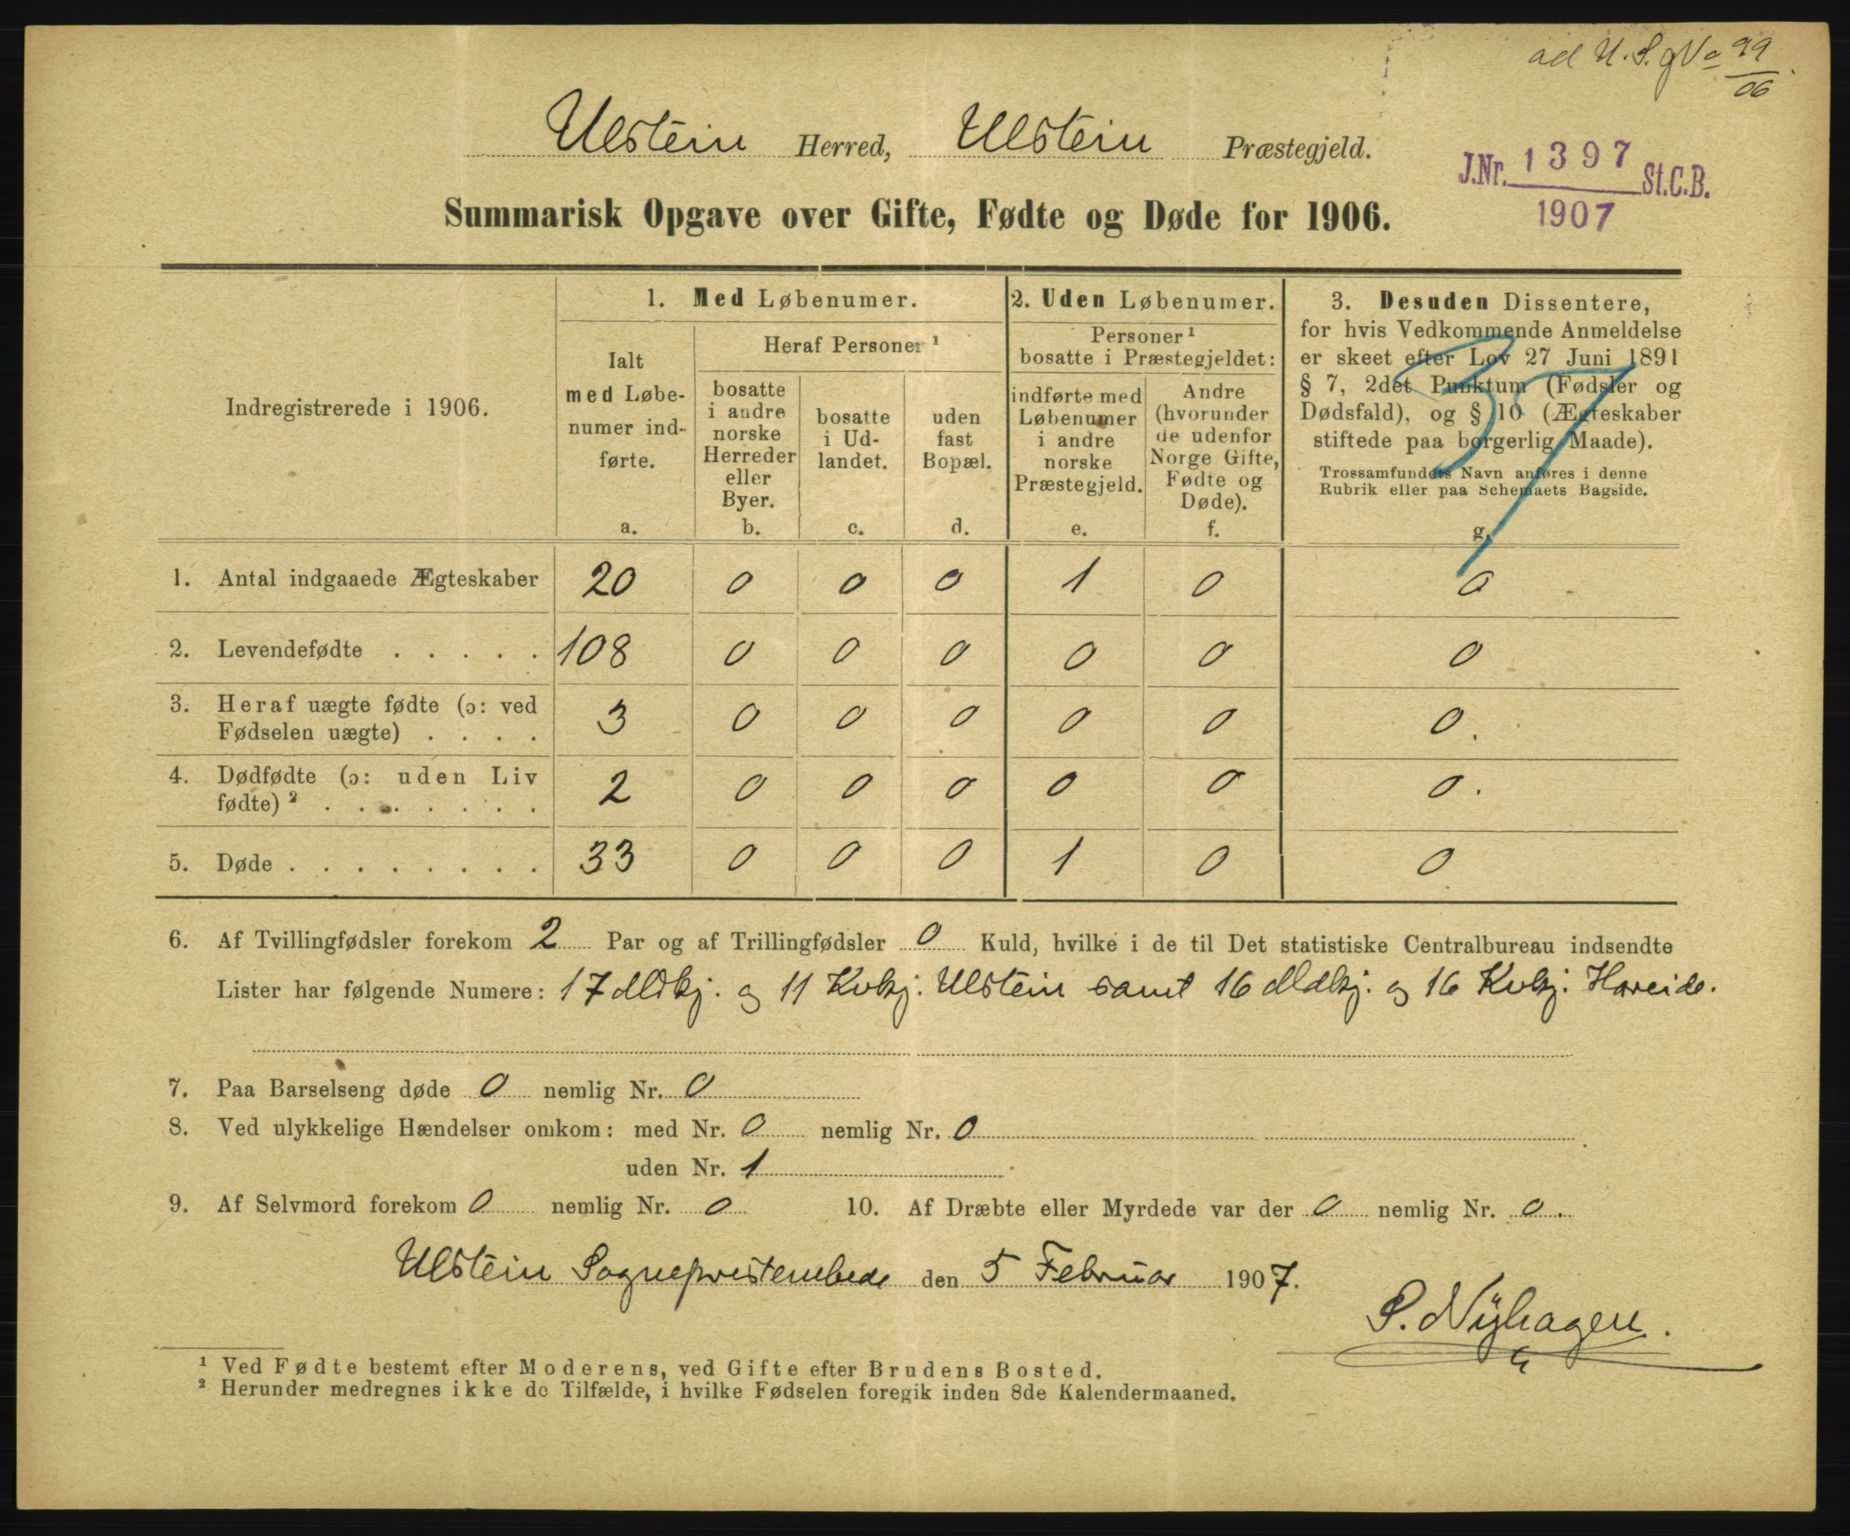 ad U. S. g No 99/06
Ulstein Herred, Ulstein Præstegjeld.
J.Nr. 1397 St.C.B.
1907
Summarisk Opgave over Gifte, Fødte og Døde for 1906.
Indregistrerede i 1906.
1. Med Løbenumer.
Ialt
med Løbe-
numer ind-
førte.
a.
Heraf Personer ¹
bosatte
i andre
norske
Herreder
eller
Byer.
b.
bosatte
i Ud-
landet.
c.
uden
fast
Bopæl.
d.
2. Uden Løbenumer.
Personer ¹
bosatte i Præstegjeldet:
indførte med
Løbenumer
i andre
norske
Præstegjeld.
e.
Andre
(hvorunder
de udenfor
Norge Gifte,
Fødte og
Døde).
f.
3. Desuden Dissentere,
for hvis Vedkommende Anmeldelse
er skeet efter Lov 27 Juni 1891
§ 7, 2det Punktum (Fødsler og
Dødsfald), og § 10 (Ægteskaber
stiftede paa borgerlig Maade).
Trossamfundets Navn anføres i denne
Rubrik eller paa Schemaets Bagside.
g.
37
1. Antal indgaaede Ægteskaber 20 0 0 0 1 0 0
2. Levendefødte . . . . . 108 0 0 0 0 0 0
3. Heraf uægte fødte (ɔ: ved
Fødselen uægte) . . . . 3 0 0 0 0 0 0.
4. Dødfødte (ɔ: uden Liv
fødte) ² . . . . . . . 2 0 0 0 0 0 0.
5. Døde . . . . . . . . 33 0 0 0 1 0 0
6. Af Tvillingfødsler forekom 2 Par og af Trillingfødsler 0 Kuld, hvilke i de til Det statistiske Centralbureau indsendte
Lister har følgende Numere: 17 Mdkj. og 11 Kvkj. Ulstein samt 16 Mdkj. og 16 Kvkj. Hareide.
7. Paa Barselseng døde 0 nemlig Nr. 0
8. Ved ulykkelige Hændelser omkom: med Nr. 0 nemlig Nr. 0
uden Nr. 1
9. Af Selvmord forekom 0 nemlig Nr. 0 10. Af Dræbte eller Myrdede var der 0 nemlig Nr. 0.
Ulstein Sogneprestembede den 5 Februar 1907.
P. Nÿhagen.
¹ Ved Fødte bestemt efter Moderens, ved Gifte efter Brudens Bosted.
² Herunder medregnes ikke de Tilfælde, i hvilke Fødselen foregik inden 8de Kalendermaaned.